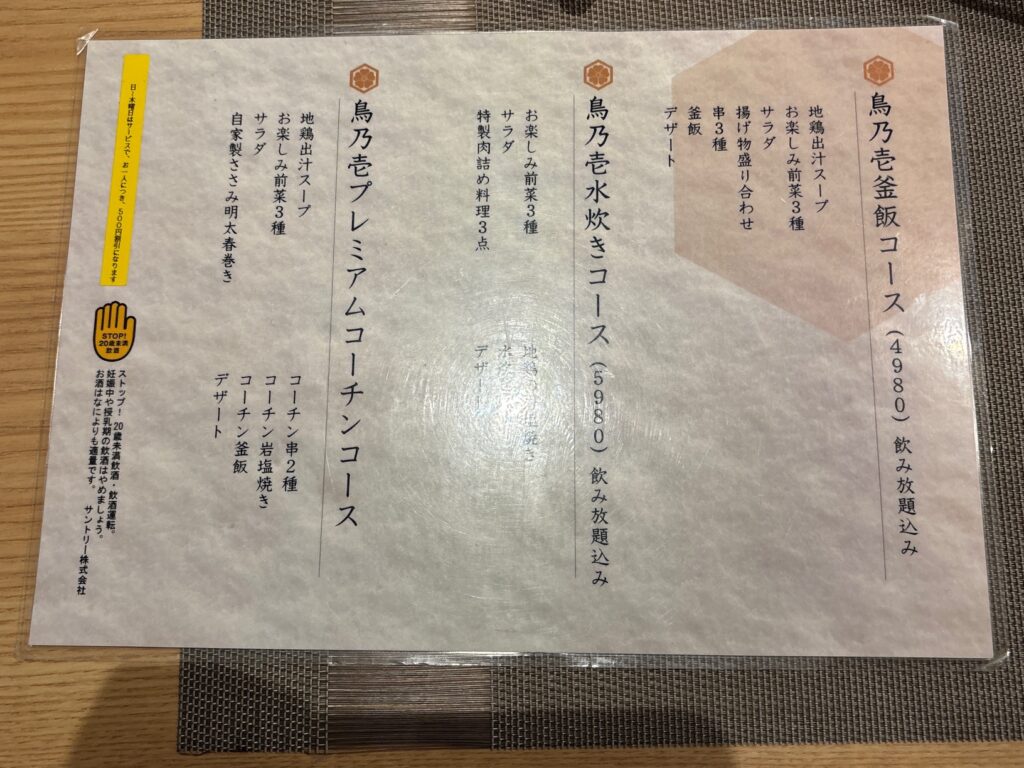 鳥乃壱釜飯コース（4980）飲み放題込み
地鶏出汁スープ
お楽しみ前菜3種
サラダ
揚げ物盛り合わせ
串3種
釜飯
デザート
鳥乃壱水炊きコース（5980）飲み放題込み
お楽しみ前菜3種
サラダ
特製肉詰め料理3点
地鶏
デザート
鳥乃壱プレミアムコーチンコース
地鶏出汁スープ
お楽しみ前菜3種
サラダ
自家製ささみ明太春巻き
コーチン串2種
コーチン岩塩焼き
コーチン釜飯
デザート
日～木曜日はサービスで、お一人につき、500円割引になります
STOP!
20歳未満
飲酒
ストップ！20歳未満飲酒・飲酒運転。
妊娠中や授乳期の飲酒はやめましょう。
お酒はなによりも適量です。 サントリー株式会社